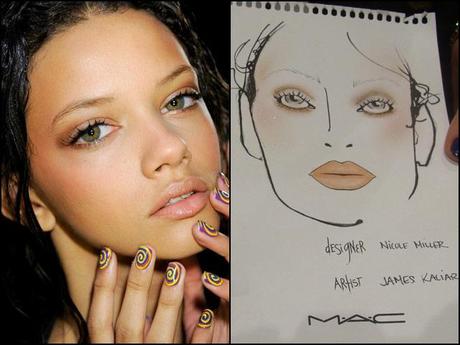 designer NICOLE MILLER
ARTIST JAMES KALIAR
M·A·C